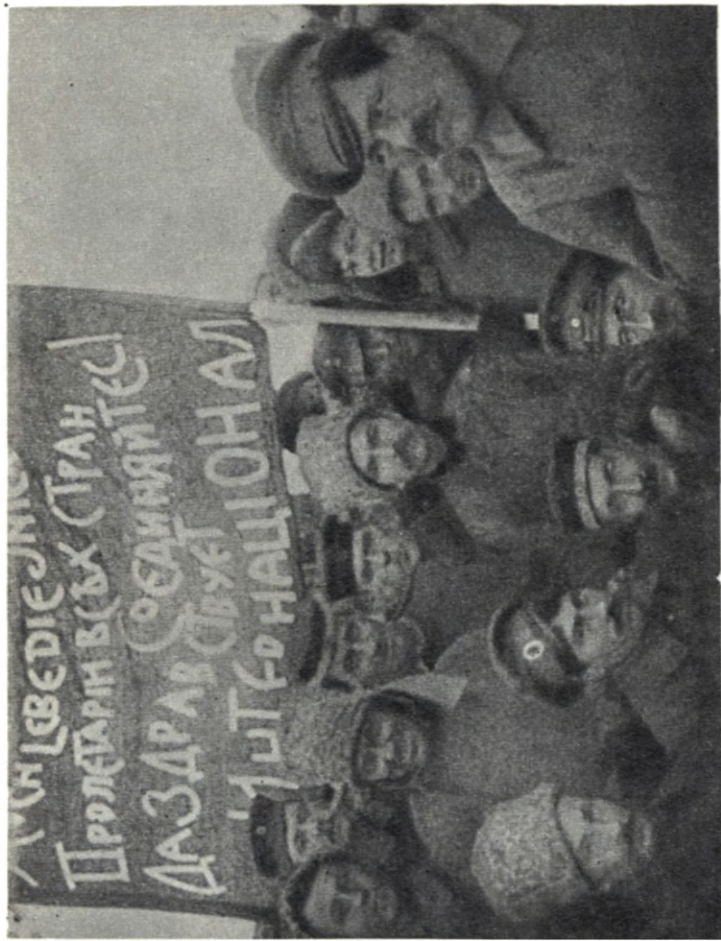 LEBE DIE
ПРОЛЕТАРІИ ВСѢХ СТРАН
СОЕДИНЯЙТЕСЬ!
ДА ЗДРАВСТВУЕТ
ИНТЕРНАЦІОНАЛ